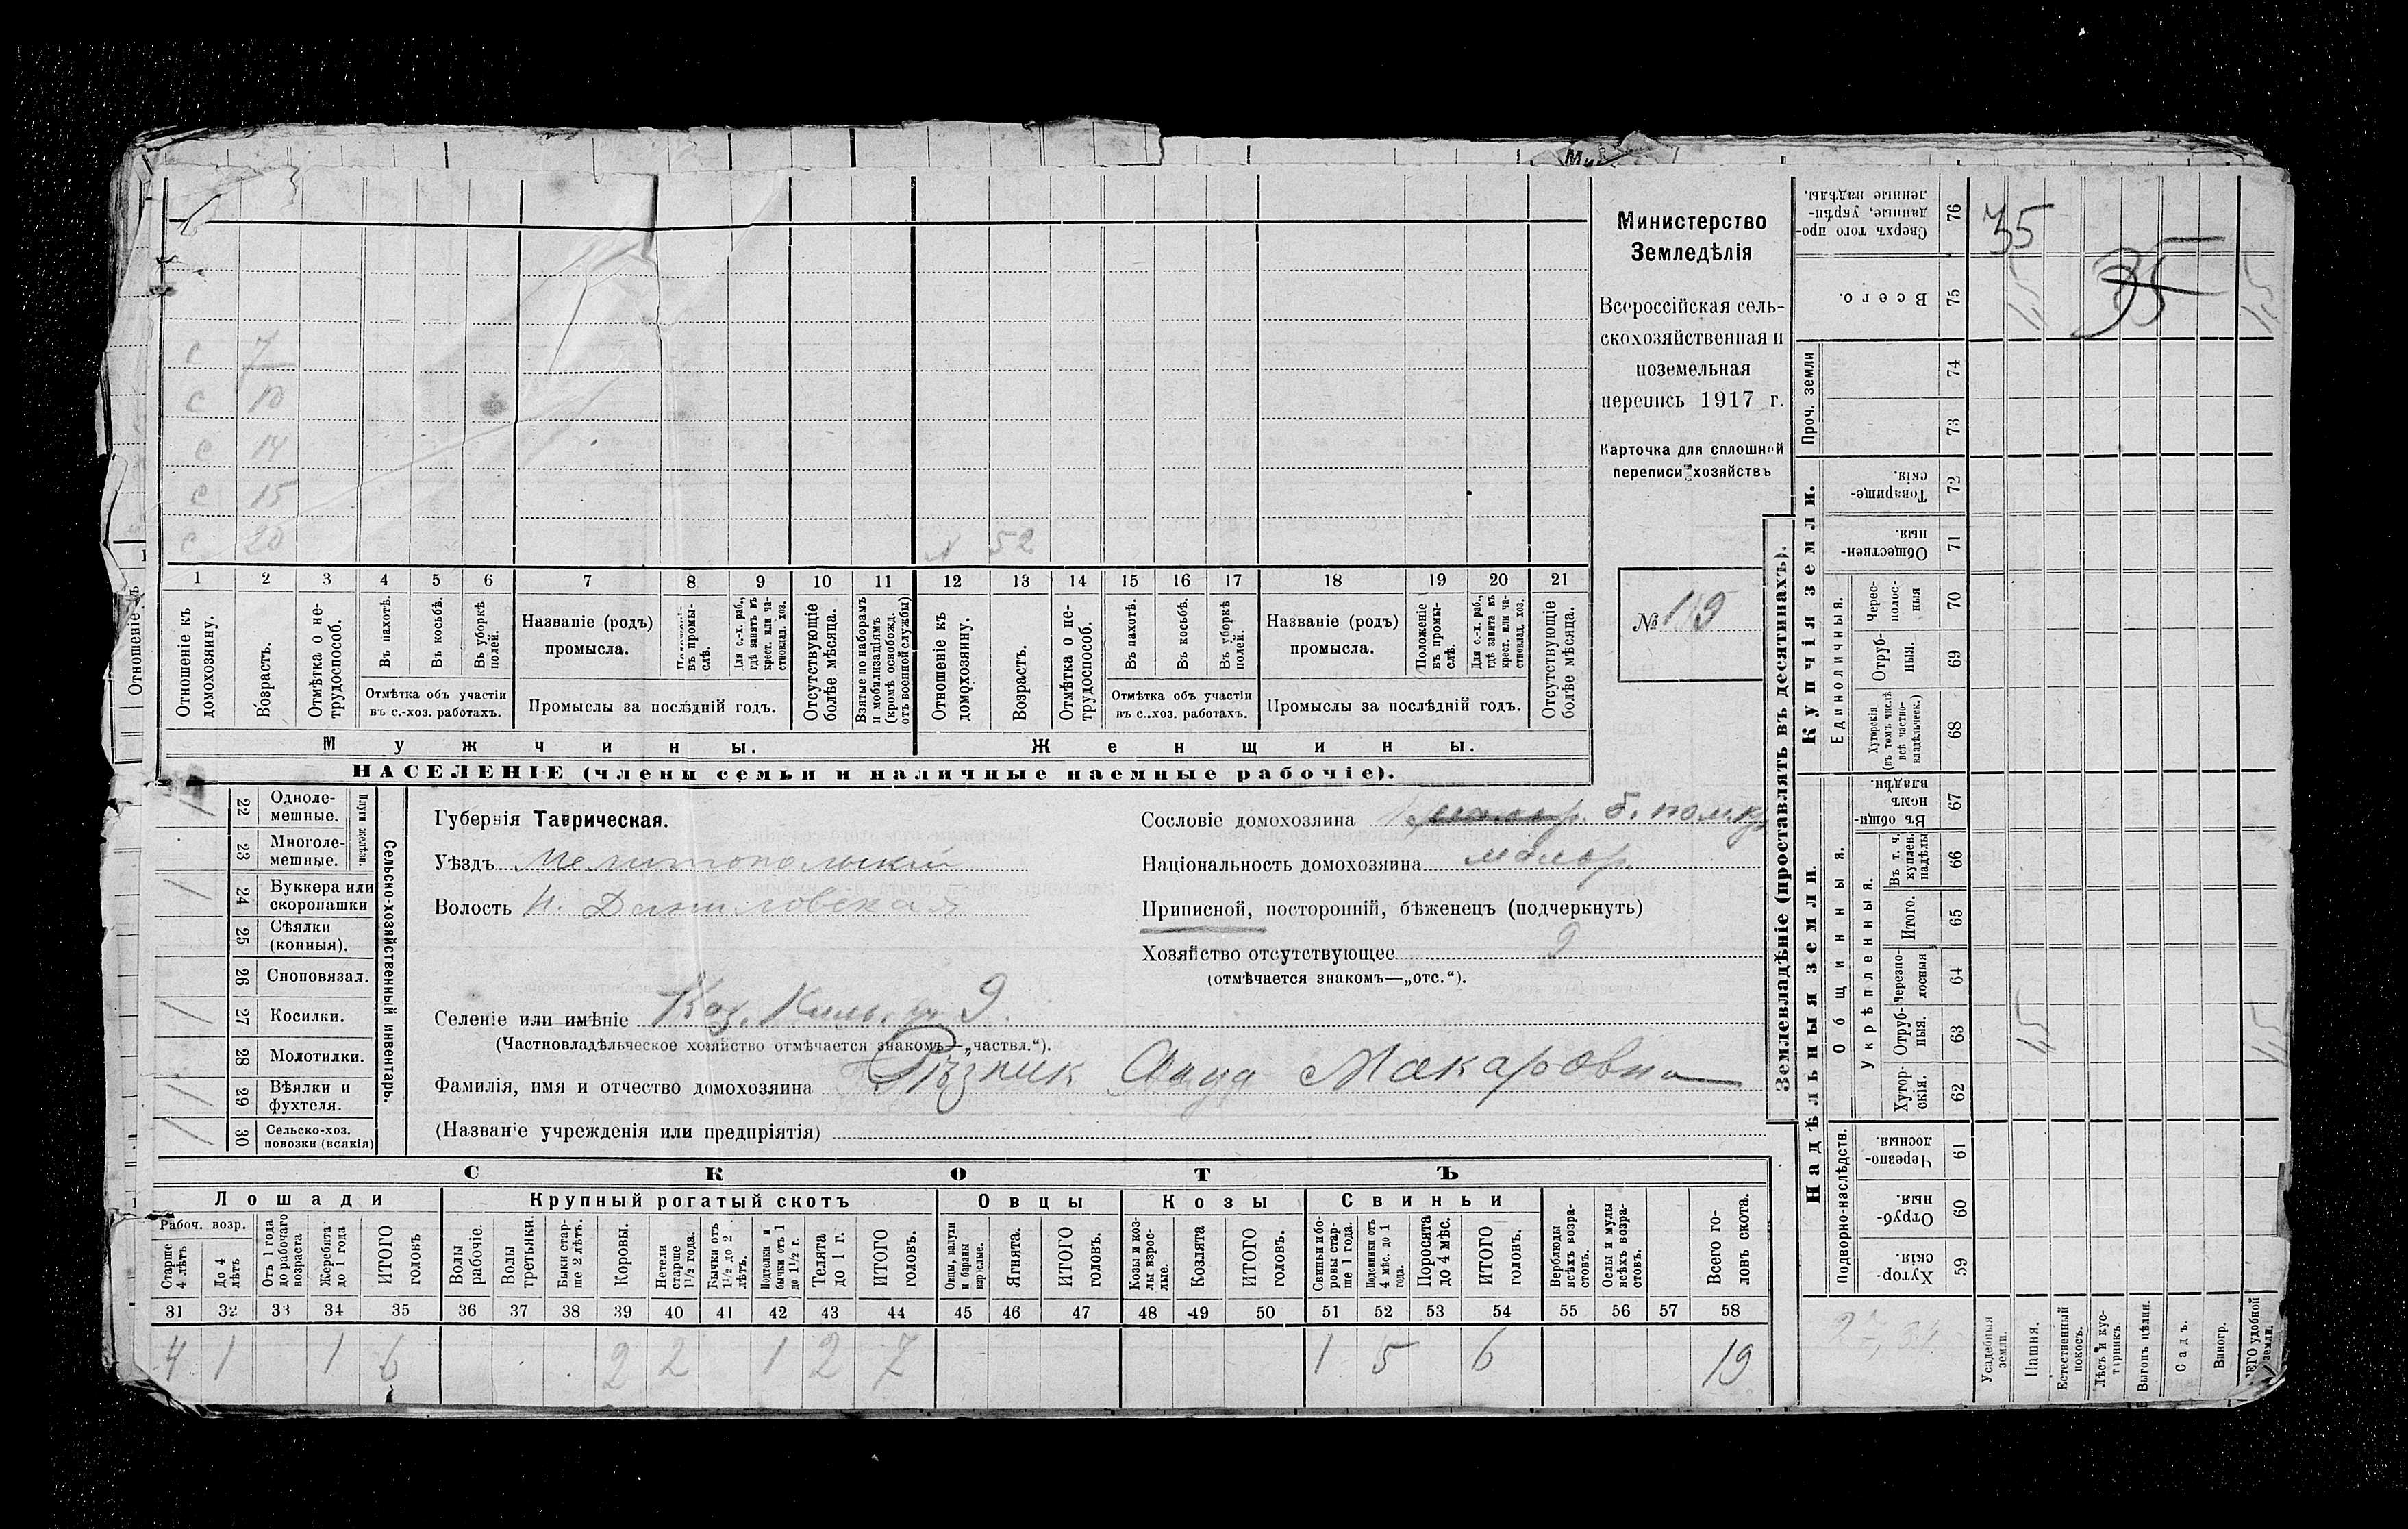 Министерство
Земледѣлія
Всероссійская сель-
скохозяйственная и
поземельная
перепись 1917 г.
Карточка для сплошной
переписи хозяйствъ
№ 119
с 7
с 10
с 14
с 15
с 20 52
1 2 3 4 5 6 7 8 9 10 11 12 13 14 15 16 17 18 19 20 21
Отношеніе къ домохозяину.
Возрастъ.
Отмѣтка о не-трудоспособ.
Въ пахотѣ.
Въ косьбѣ.
Въ уборкѣ полей.
Отмѣтка объ участіи
въ с.-хоз. работахъ.
Названіе (родъ)
промысла.
въ промы-слѣ.
Для с.-х. раб., гдѣ занятъ въ крест. или ча-стновлад. хоз.
Промыслы за послѣдній годъ.
Отсутствующіе болѣе мѣсяца.
Взятые по наборамъ и мобилизаціямъ (кромѣ освобожд. отъ военной службы)
Отношеніе къ домохозяину.
Возрастъ.
Отмѣтка о не-трудоспособ.
Въ пахотѣ.
Въ косьбѣ.
Въ уборкѣ полей.
Отмѣтка объ участіи
въ с.-хоз. работахъ.
Названіе (родъ)
промысла.
Положеніе въ промы-слѣ.
Для с.-х. раб., гдѣ занята въ крест. или ча-стновлад. хоз.
Промыслы за послѣдній годъ.
Отсутствующіе болѣе мѣсяца.
Мужчины.
Женщины.
НАСЕЛЕНІЕ (члены семьи и наличные наемные рабочіе).
Сельско-хозяйственный инвентарь.
Плуги желѣзн.
22 Одноле-мешные.
23 Многоле-мешные.
24 Буккера или скоропашки
25 Сѣялки (конныя).
26 Сноповязал.
27 Косилки.
28 Молотилки.
29 Вѣялки и фухтеля.
30 Сельско-хоз. повозки (всякія)
Губернія Таврическая.
Уѣздъ Мелитопольскій
Волость Н. Даниловская
Селеніе или имѣніе
(Частновладѣльческое хозяйство отмѣчается знакомъ—„частвл.“).
Фамилія, имя и отчество домохозяина Рѣзник Анна Макаровна
(Названіе учрежденія или предпріятія)
Сословіе домохозяина
Національность домохозяина малор.
Приписной, посторонній, бѣженецъ (подчеркнуть)
Хозяйство отсутствующее
(отмѣчается знакомъ—„отс.“).
СКОТЪ
Лошади Крупный рогатый скотъ Овцы Козы Свиньи
Рабоч. возр.
Старше 4 лѣтъ
До 4 лѣтъ
Отъ 1 года до рабочаго возраста
Жеребята до 1 года
ИТОГО головъ
Волы рабочіе.
Волы третьяки.
Быки стар-ше 2 лѣтъ.
Коровы.
Нетели старше 1½ года.
Бычки отъ 1½ до 2 лѣтъ.
Подтелки и бычки отъ 1 до 1½ г.
Телята до 1 г.
ИТОГО головъ.
Овцы, валухи и бараны взрослые.
Ягнята.
ИТОГО головъ.
Козы и коз-лы взрос-лые.
Козлята
ИТОГО головъ.
Свиньи и бо-ровы стар-ше 1 года.
Подсвинки отъ 4 мѣс. до 1 года.
Поросята до 4 мѣс.
ИТОГО головъ.
Верблюды всѣхъ возра-стовъ.
Ослы и мулы всѣхъ возра-стовъ.
Всего го-ловъ скота.
31 32 33 34 35 36 37 38 39 40 41 42 43 44 45 46 47 48 49 50 51 52 53 54 55 56 57 58
4 1 1 6 2 2 1 2 7 1 5 6 19
Землевладѣніе (проставлять въ десятинахъ).
Купчія земли.
Надѣльныя земли.
Проч. земли
Единоличныя.
Общинныя.
Укрѣпленныя.
Подворно-наслѣдств.
76 Сверхъ того про-данные, укрѣп-ленные надѣлы.
75 Всего.
74
73
72 Товарище-скія.
71 Обществен-ныя.
70 Черес-полос-ныя
69 Отруб-ныя.
68 Хуторскія (въ томъ числѣ всѣ частно-владѣльческ.)
67 Въ общи-номъ владѣн.
66 Въ т. ч. куплен. надѣлы
65 Итого.
64 Черезпо-лосныя
63 Отруб-ныя.
62 Хутор-скія.
61 Черезпо-лосныя.
60 Отруб-ныя.
59 Хутор-скія.
35
35
15
15
15
15
Усадебныя земли.
Пашня.
Естественный покосъ.
Лѣсъ и кус-тарникъ.
Выгонъ цѣлин.
Садъ.
Виногр.